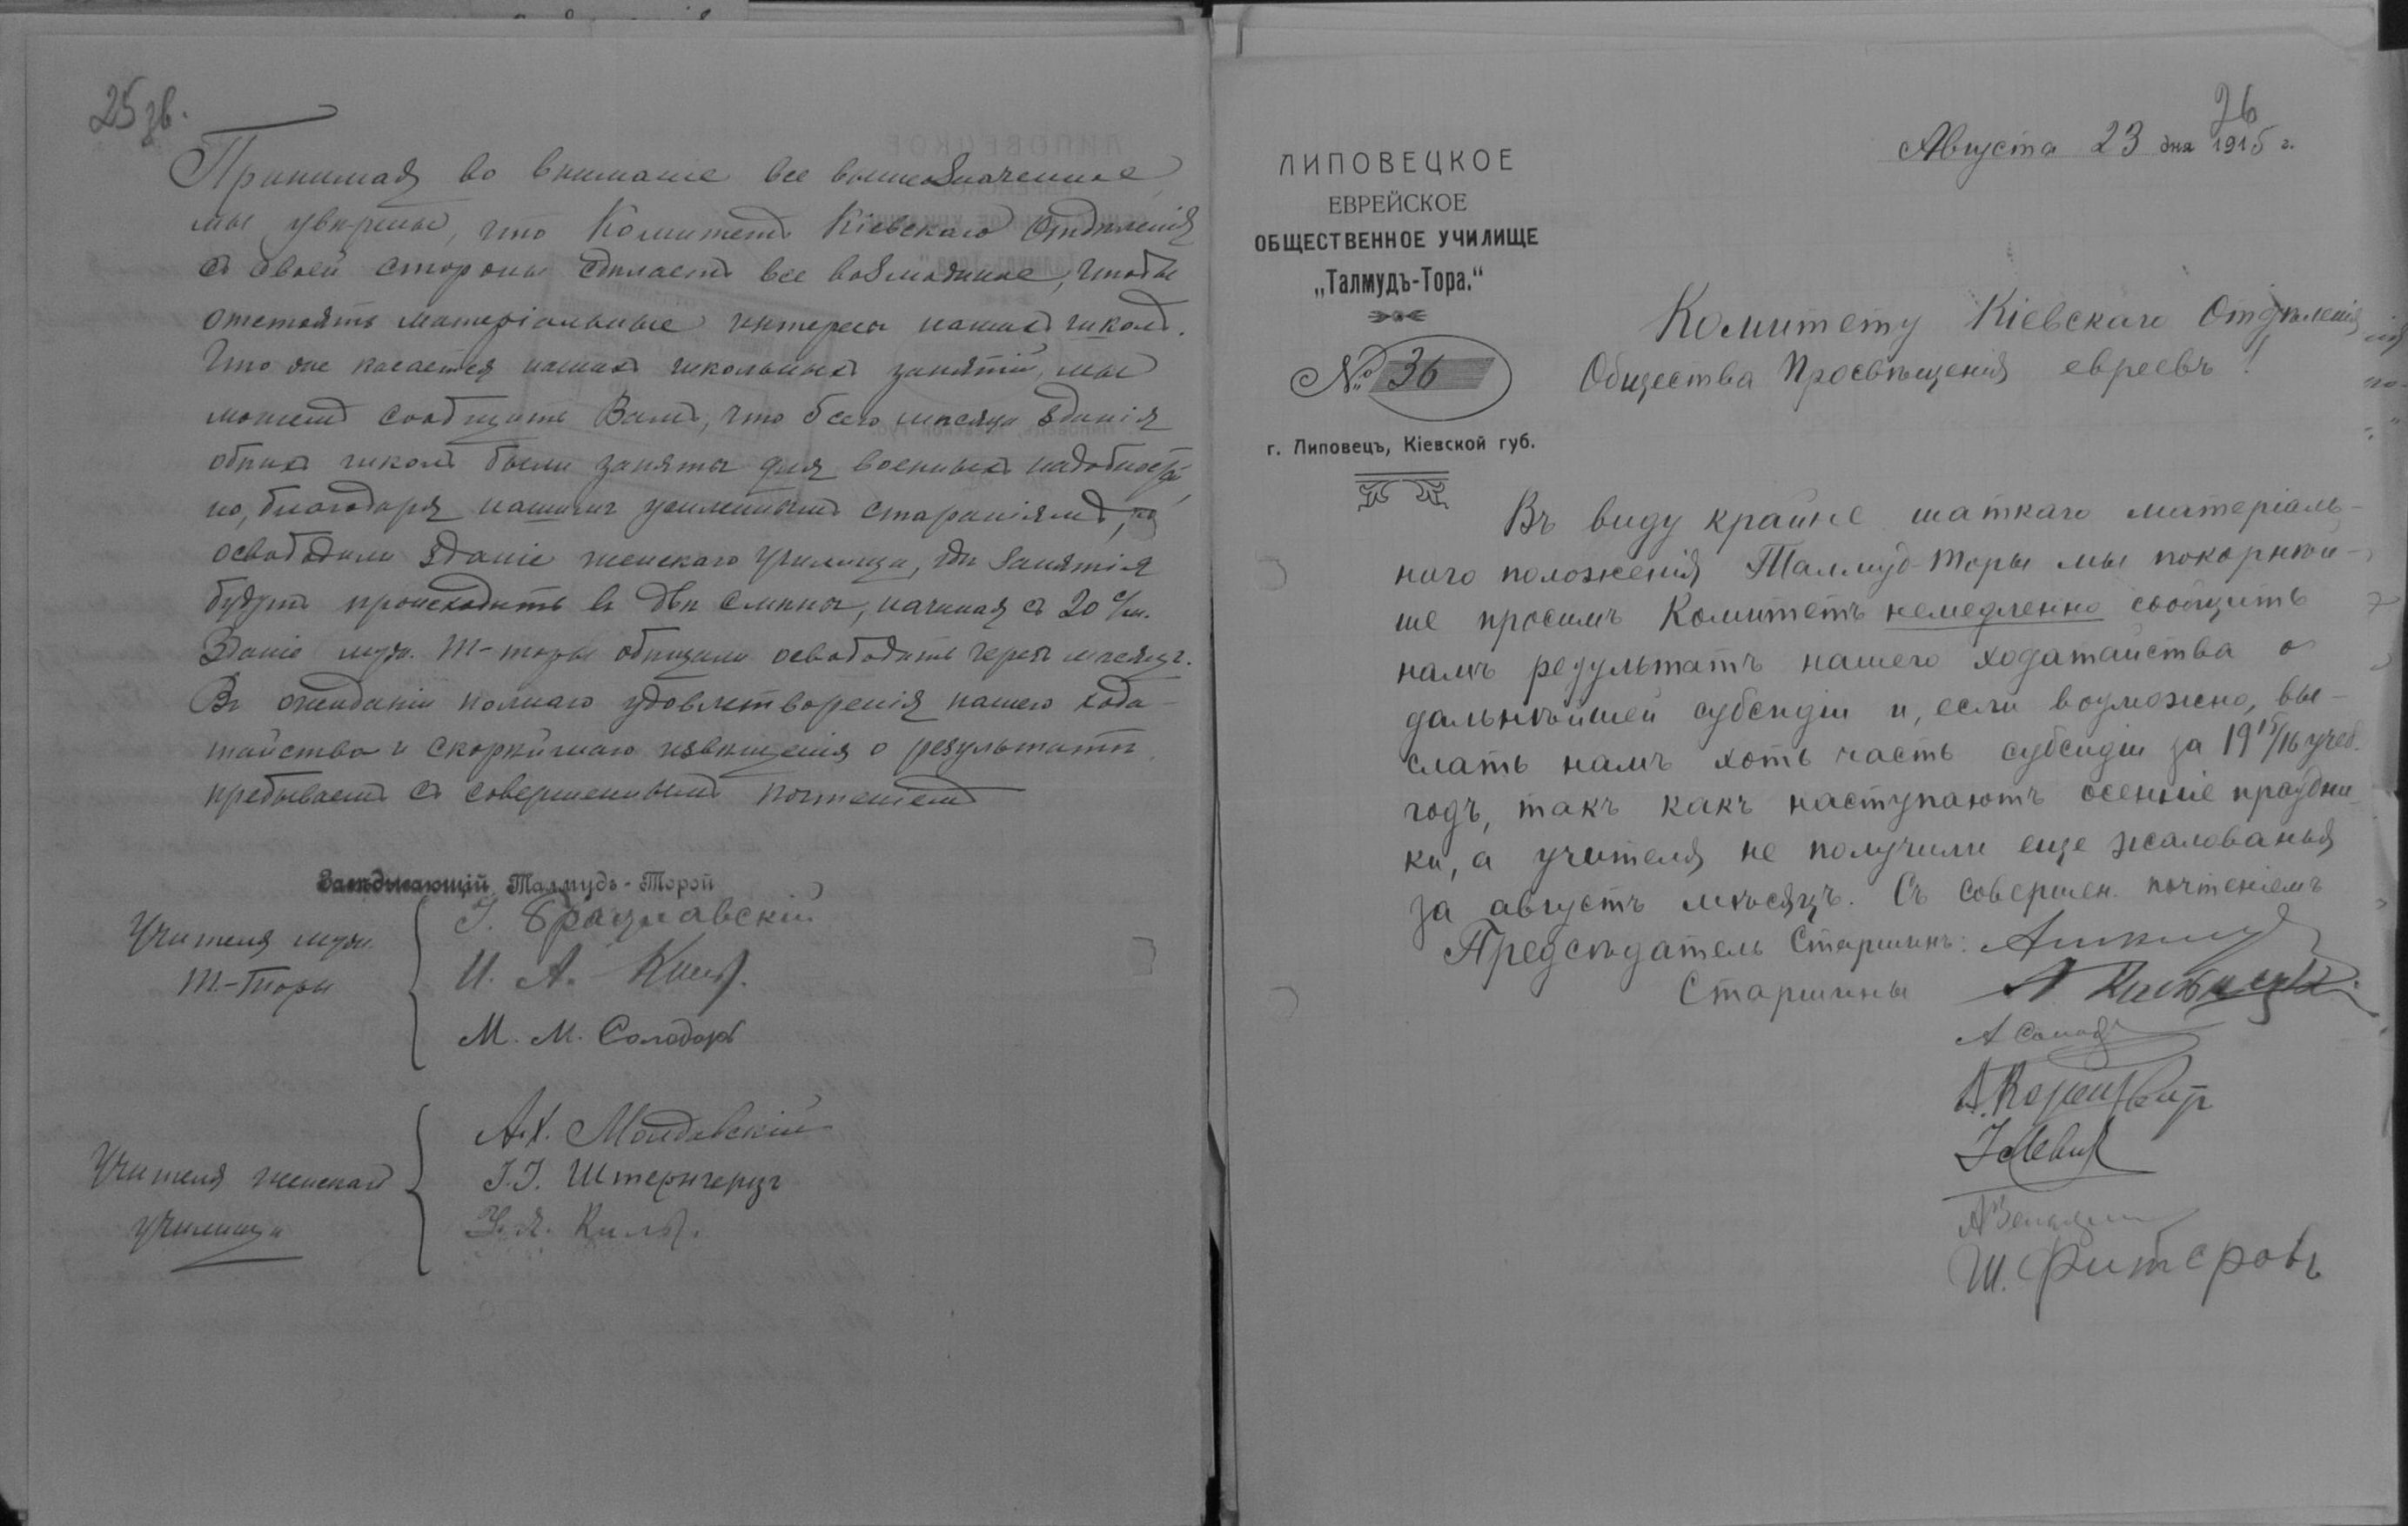 25 зв.
Принимая во вниманіе все вышеозначенное,
мы увѣрены, что Комитетъ Кіевскаго Отдѣленія
съ своей стороны сдѣлаетъ все возможное, чтобы
отстоять матеріальные интересы нашихъ школъ.
Что же касается нашихъ школьныхъ занятій, мы
можемъ сообщить Вамъ, что 5 сего мѣсяца зданія
обѣихъ школъ были заняты для военныхъ надобностей,
но, благодаря нашимъ усиленнымъ стараніямъ,
освободили зданіе женскаго училища, гдѣ занятія
будутъ происходить въ двѣ смѣны, начиная съ 20 с/м.
Зданіе муж. Т-торы обѣщали освободить черезъ мѣсяцъ.
Въ ожиданіи полнаго удовлетворенія нашего хода-
тайства и скорѣйшаго извѣщенія о результатѣ,
пребываемъ съ совершеннымъ почтеніемъ
Завѣдывающій Талмудъ-Торой
Учителя муж.
Т.-Торы
І. Брацлавскій
И. А. Кильд.
М. М. Солодарь
Учителя женскаго
училища
А.Х. Молдавскій
І.І. Штернгерцъ
26
Августа 23 дня 1915 г.
ЛИПОВЕЦКОЕ
ЕВРЕЙСКОЕ
ОБЩЕСТВЕННОЕ УЧИЛИЩЕ
„Талмудъ-Тора.“
№ 36
г. Липовецъ, Кіевской губ.
Комитету Кіевскаго Отдѣленія
Общества Просвѣщенія евреевъ!
Въ виду крайне шаткаго матеріаль-
наго положенія Талмудъ-Торы мы покорнѣй-
ше просимъ Комитетъ немедленно сообщить
намъ результатъ нашего ходатайства о
дальнѣйшей субсидіи и, если возможно, вы-
слать намъ хоть часть субсидіи за 1915/16 учеб.
годъ, такъ какъ наступаютъ осенніе праздни-
ки, а учителя не получили еще жалованья
за августъ мѣсяцъ. Съ совершен. почтеніемъ
Предсѣдатель Старшинъ:
Старшины
Ш. Фитеровъ